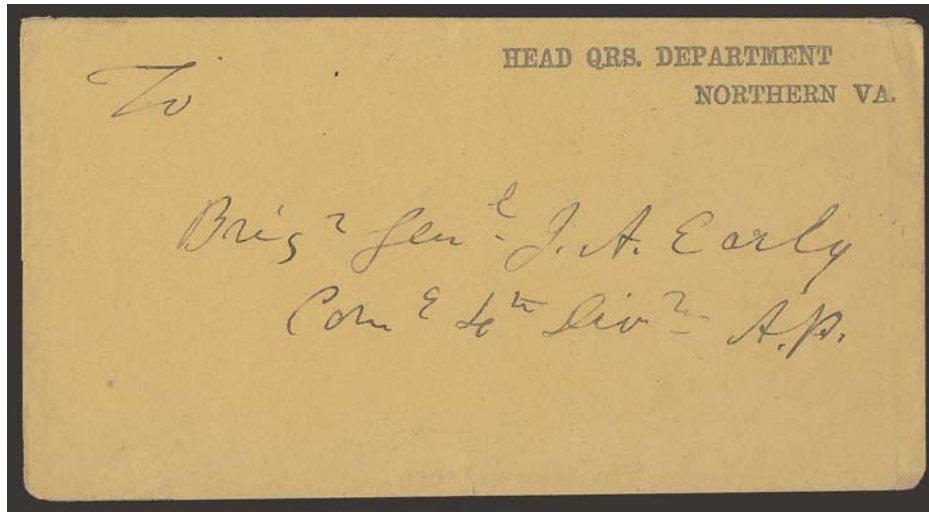 HEAD QRS. DEPARTMENT
NORTHERN VA.
To
Brigr Genl J. A. Early
Comg 4th Divn A.P.